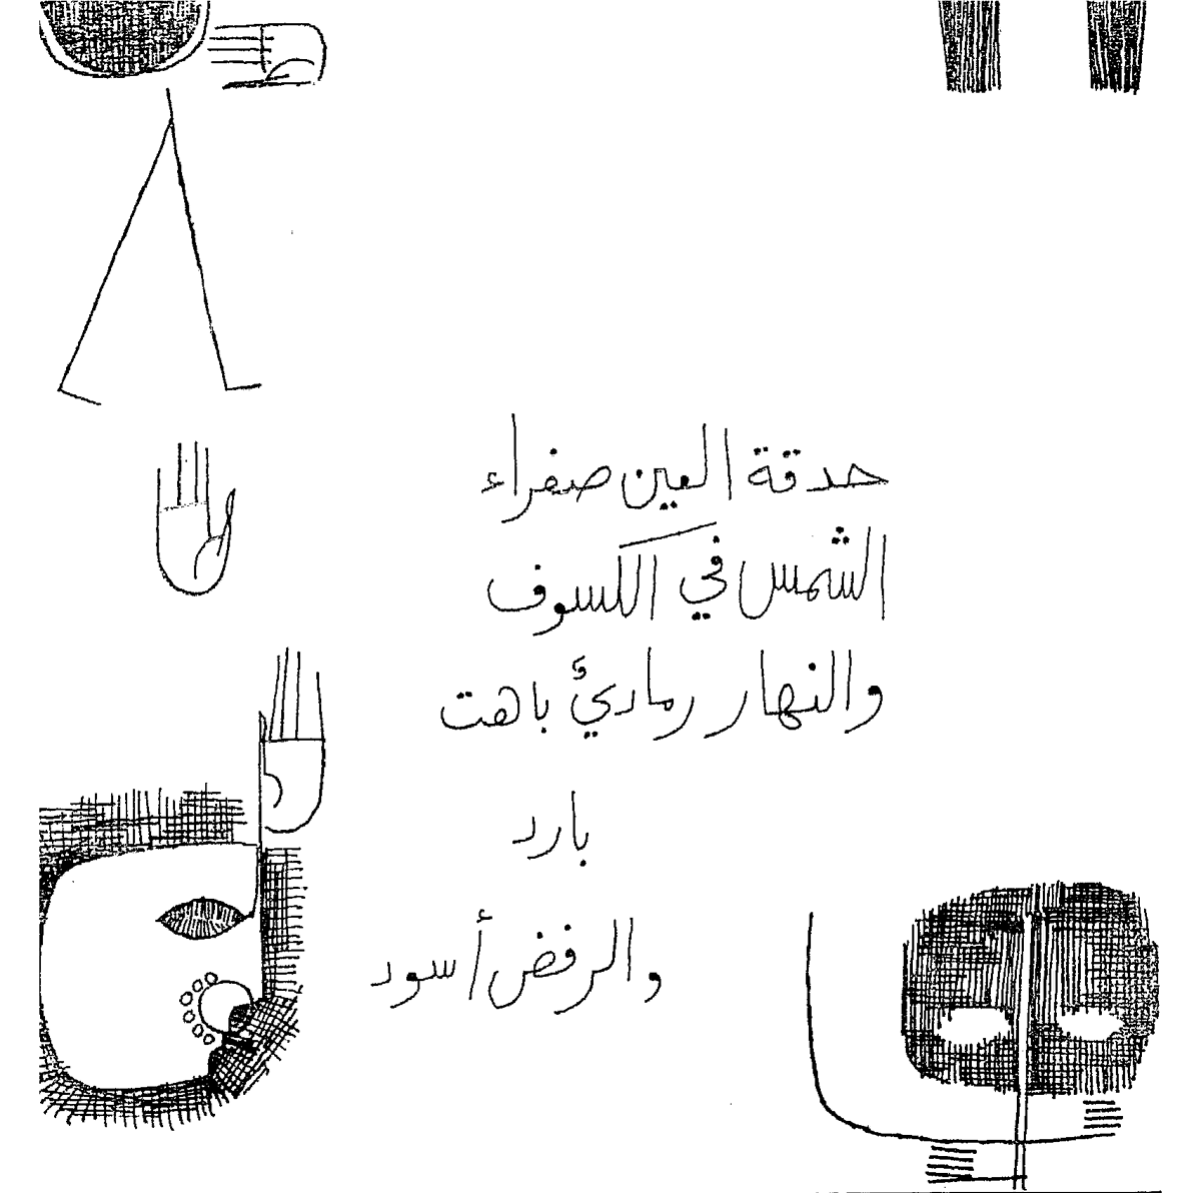 حدقة العين صفراء
الشمس في الكسوف
والنهار رماديٌ باهت
بارد
والرفض أسود